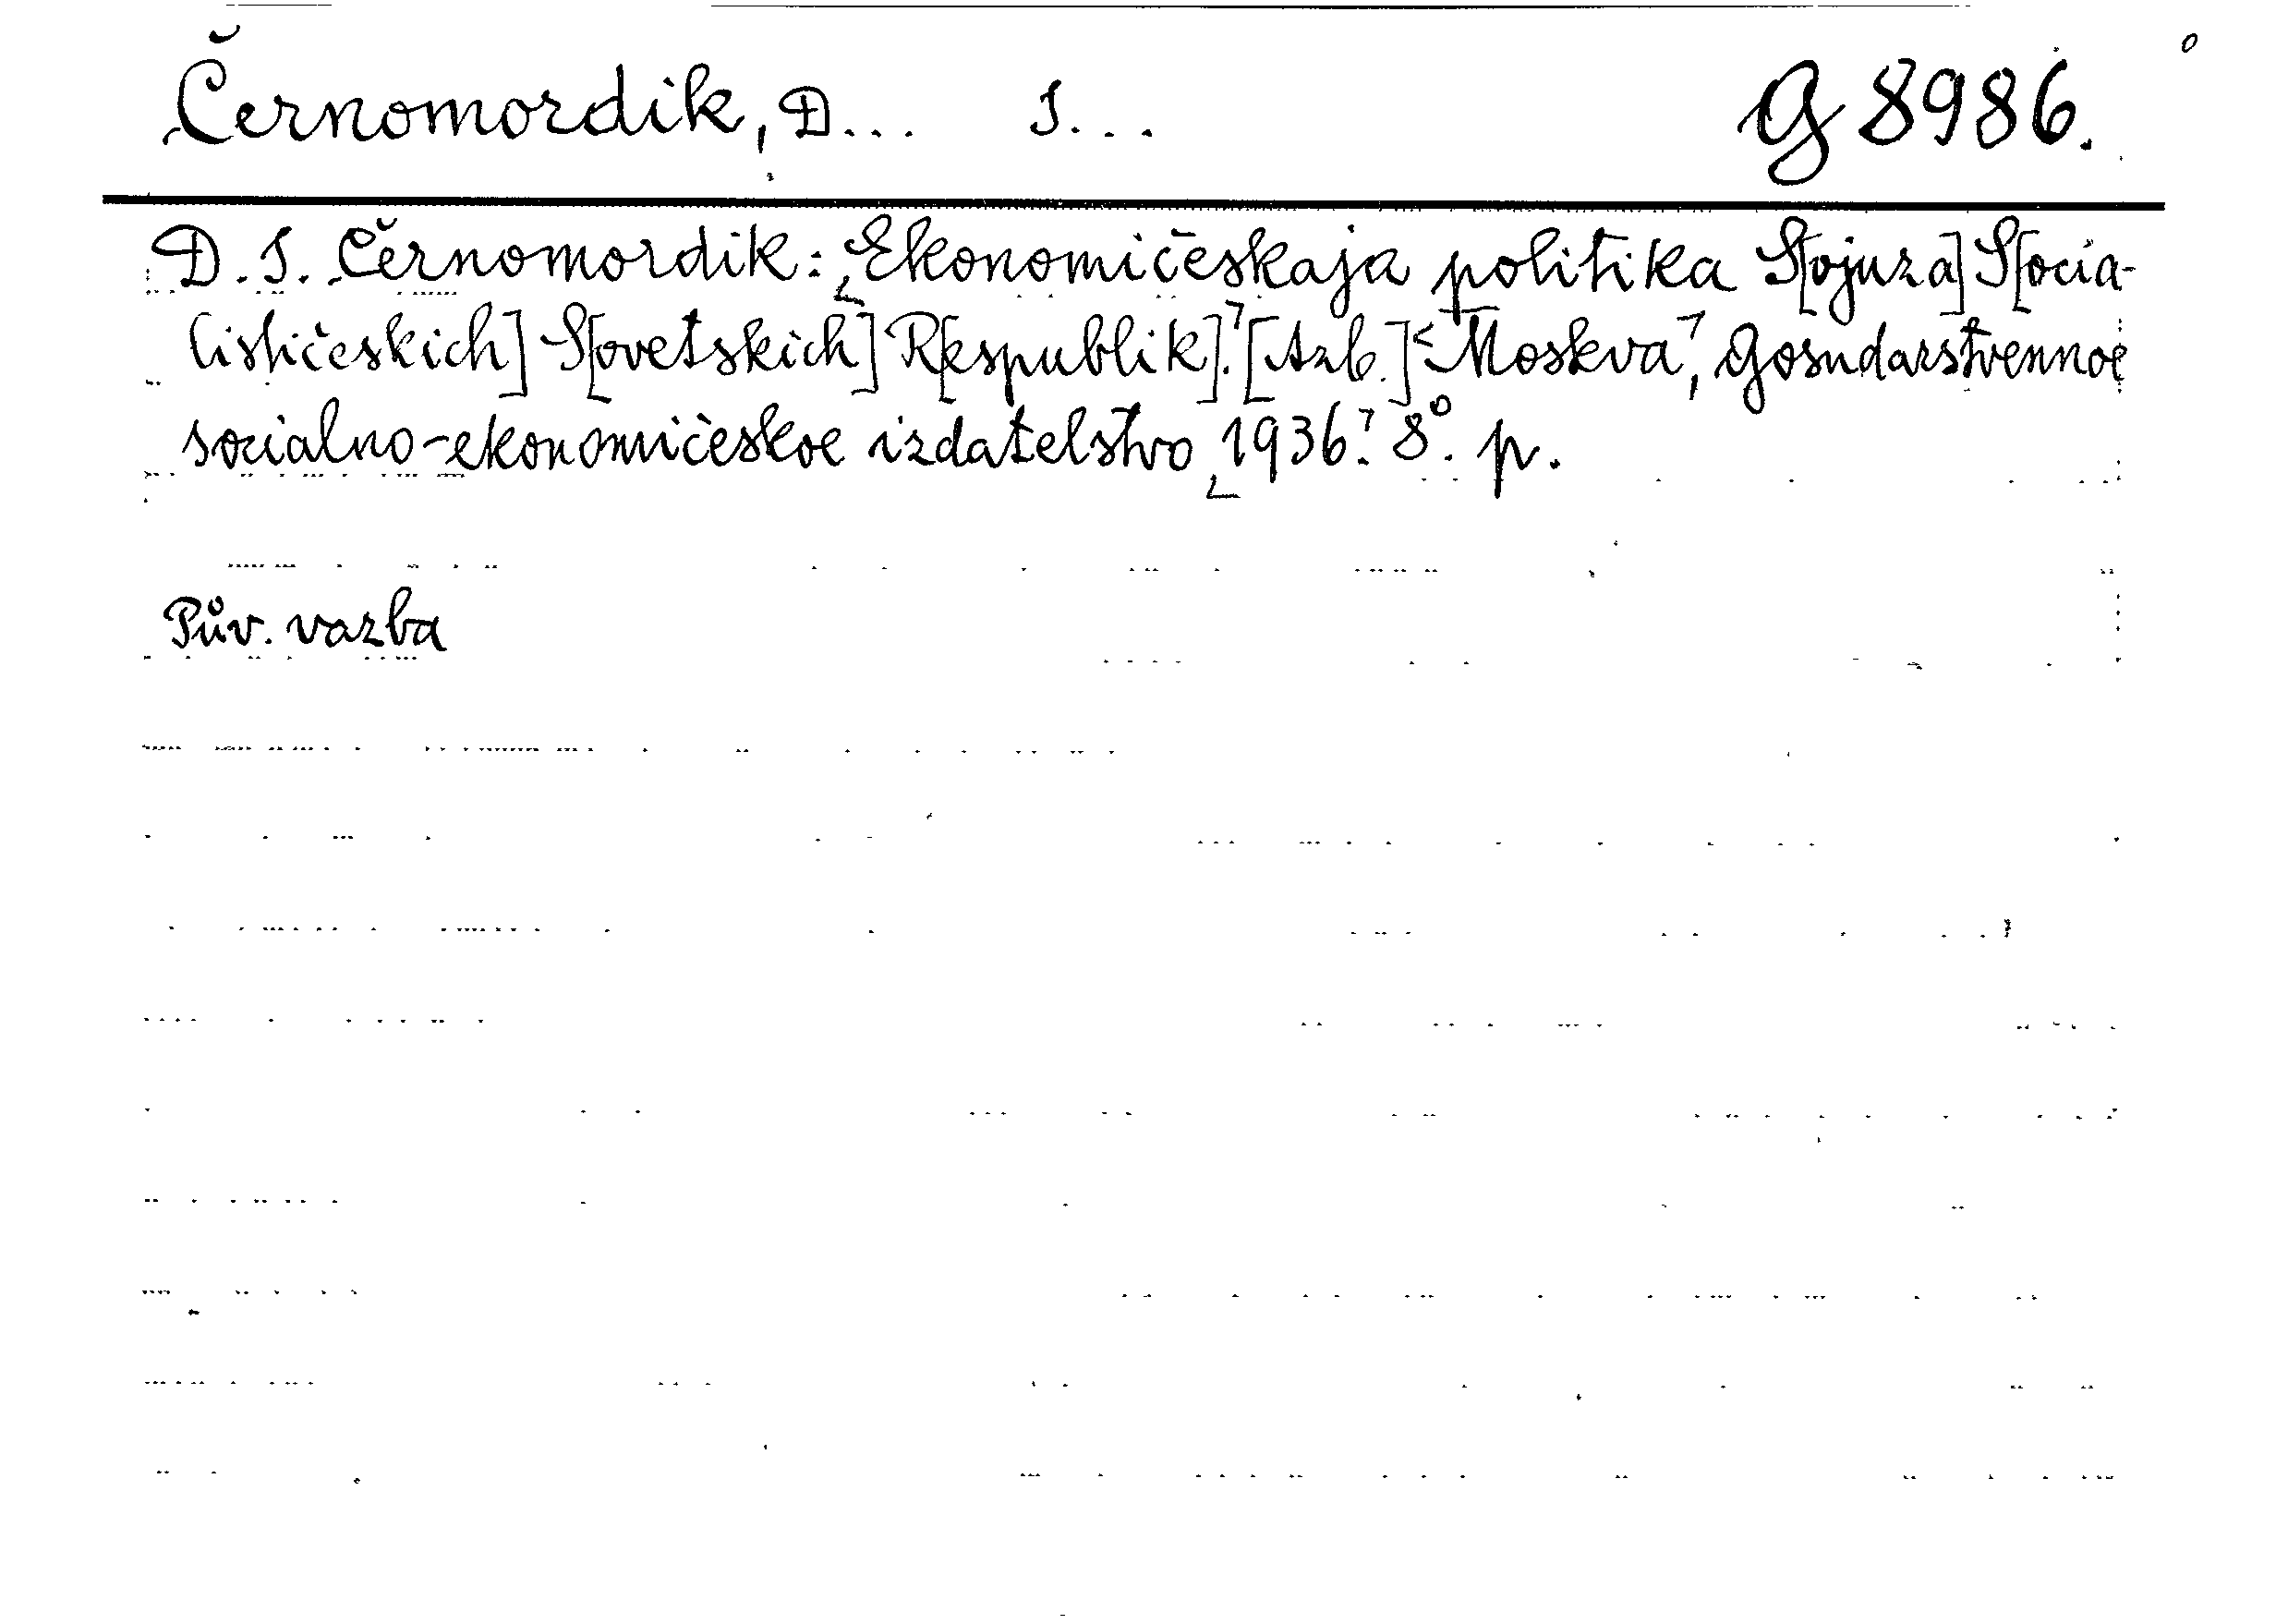 Černomordik, D... I... G 8986.
D. I. Černomordik: Ekonomičeskaja politika S[ojuza] S[ocia-
lističeskich] S[ovetskich] R[espublik]. [Azb.] Moskva, Gosudarstvennoe
socialno-ekonomičeskoe izdatelstvo 1936. 8°. p.
Pův. vazba